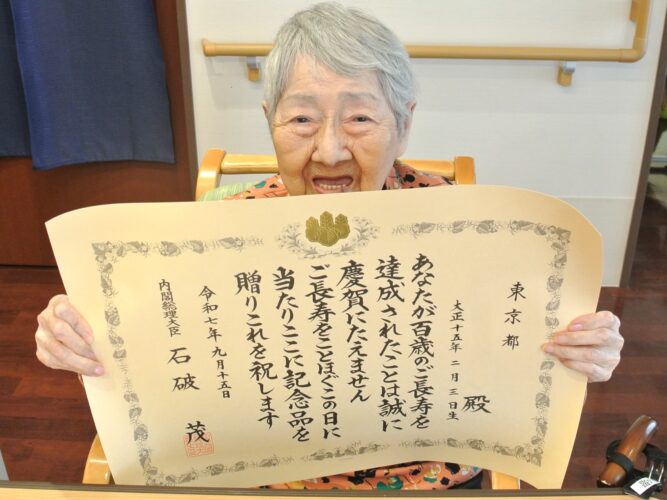 東京都
殿
大正十五年 二月三日生
あなたが百歳のご長寿を
達成されたことは誠に
慶賀にたえません
ご長寿をことほぐこの日に
当たりここに記念品を
贈りこれを祝します
令和七年九月十五日
内閣総理大臣 石破 茂